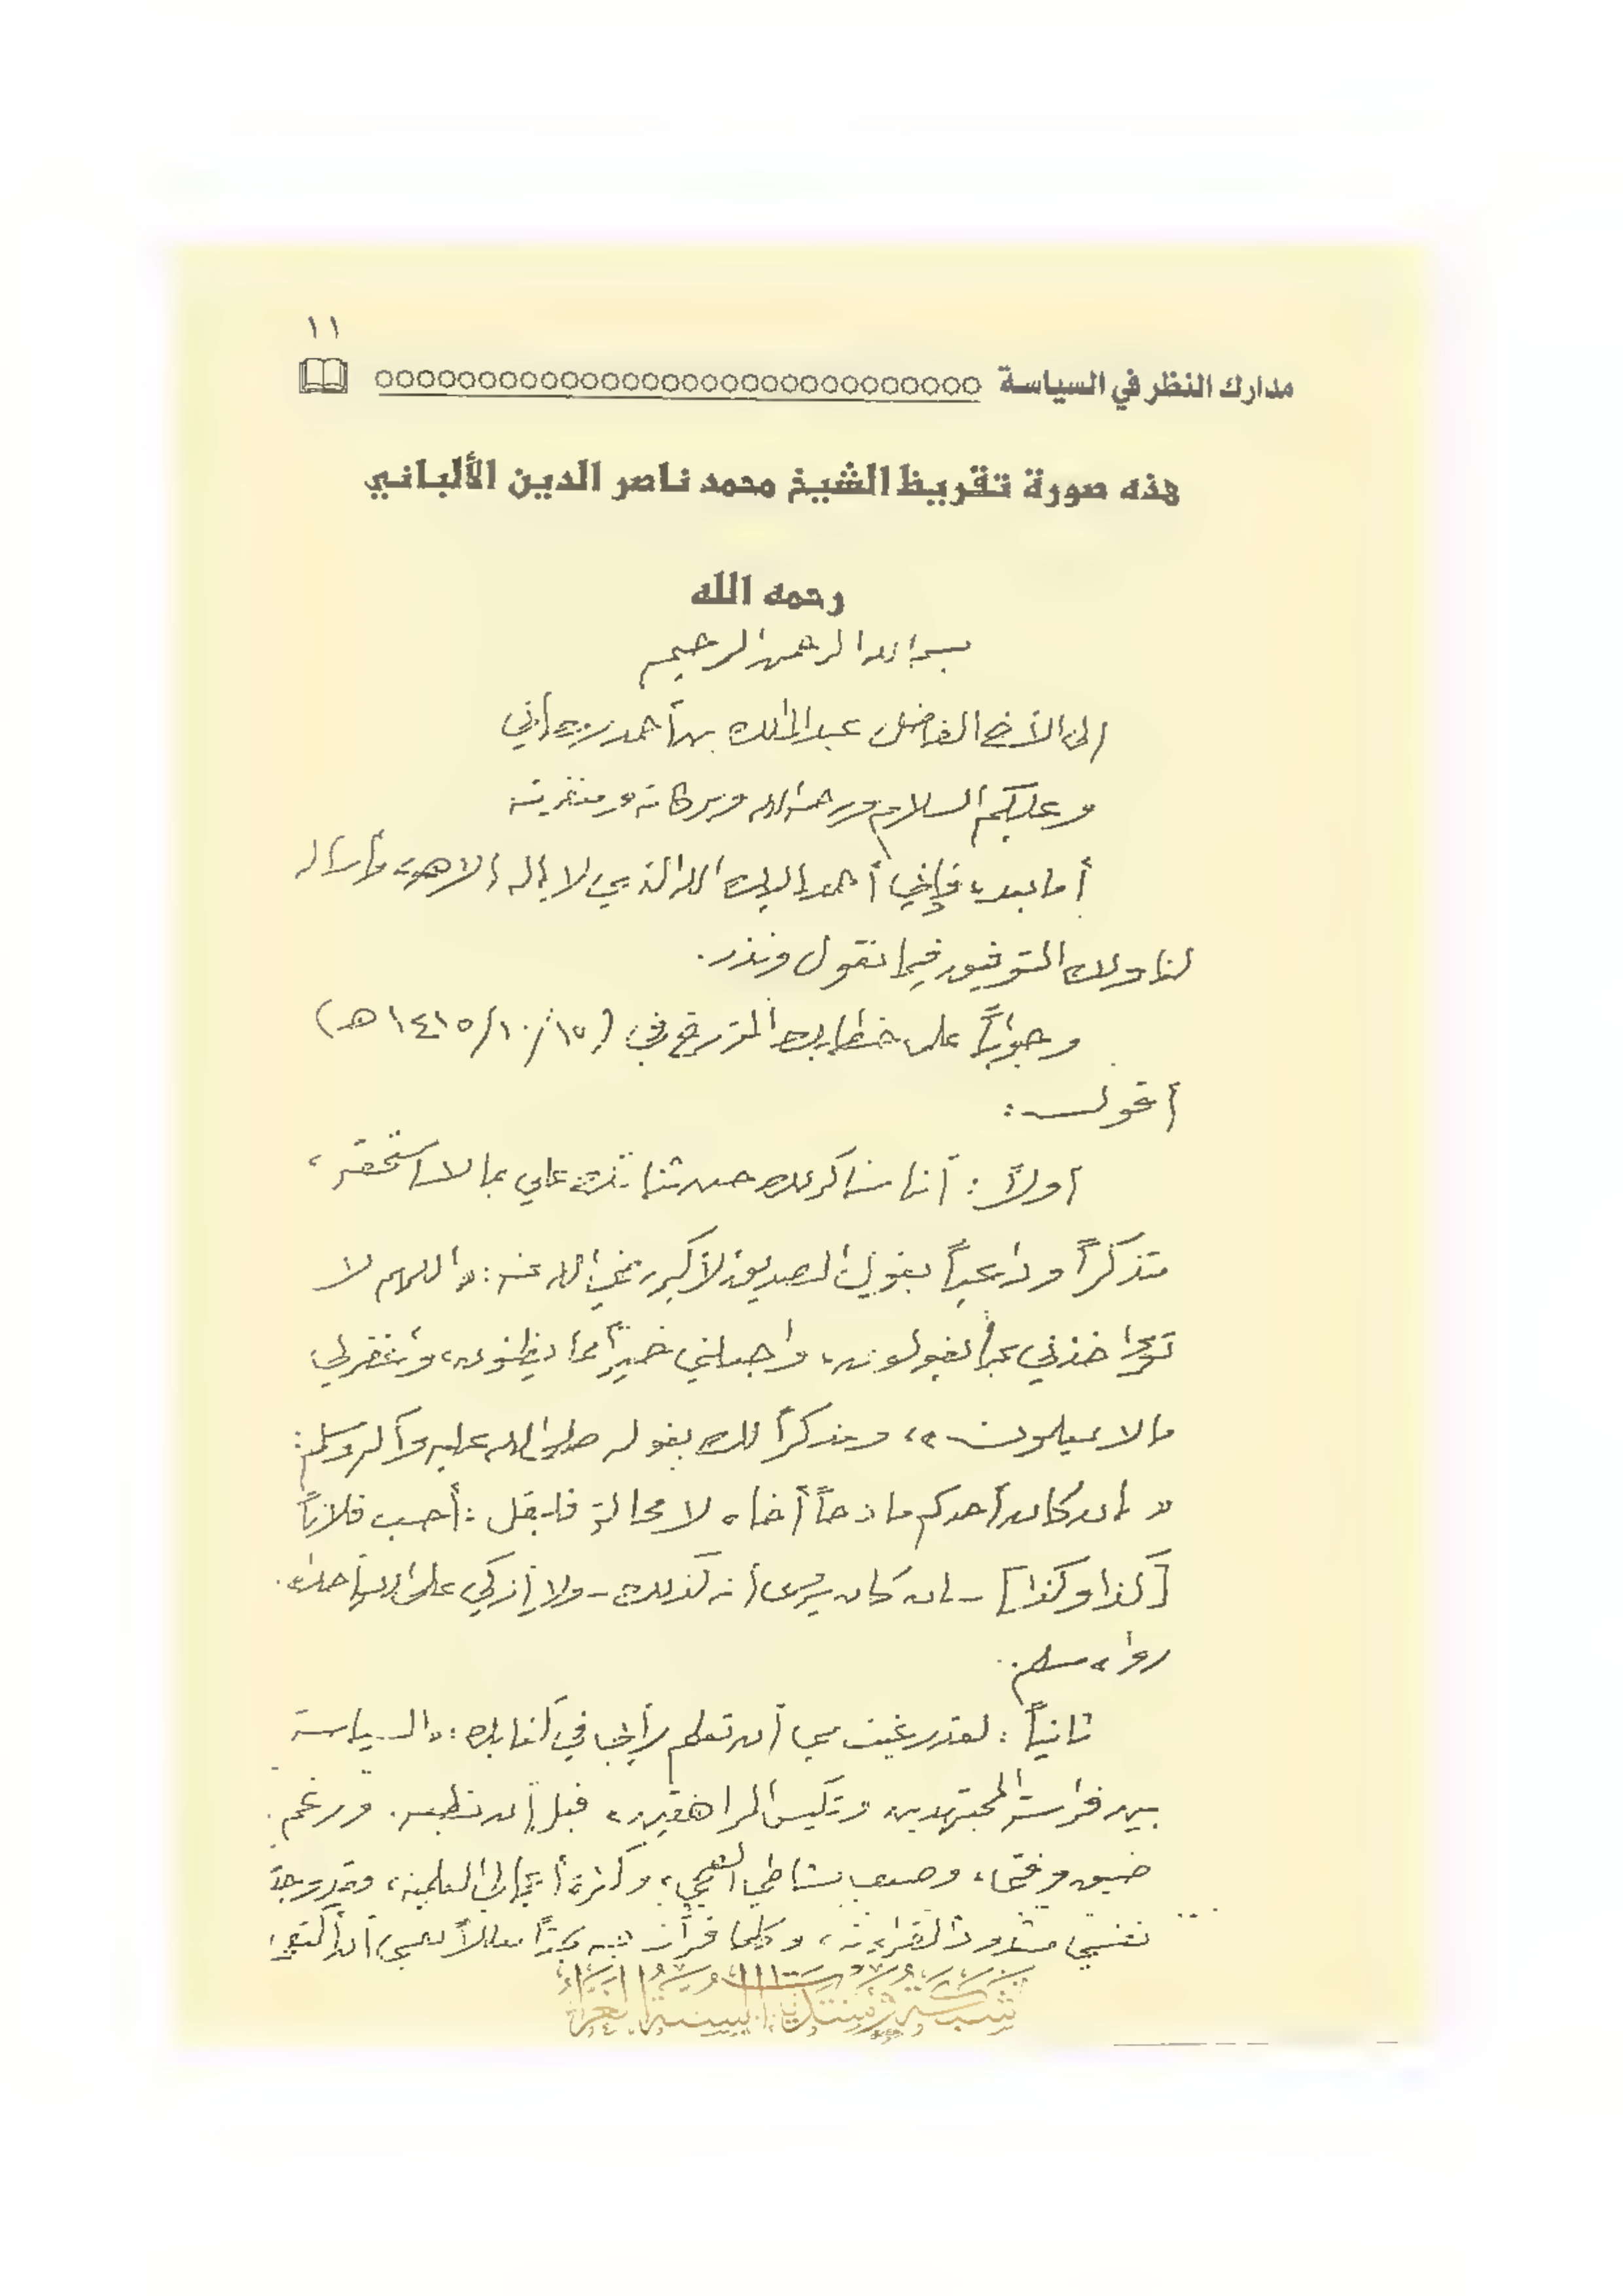 ١١
مدارك النظر في السياسة
هذه صورة تقريظ الشيخ محمد ناصر الدين الألباني
رحمه الله
بسم الله الرحمن الرحيم
إلى الأخ الفاضل عبد المالك بن أحمد رمضاني
وعليكم السلام ورحمة الله وبركاته ومغفرته
أما بعد، فإني أحمد إليك الله الذي لا إله إلا هو، وأسأله
لنا ولك التوفيق فيما نقول ونذر.
وجواباً على خطابك المؤرخ في (١٤١٥/١٠/١٥هـ)
أقول:
أولاً: أنا شاكر لك حسن ثنائك علي بما لا أستحقه،
متذكراً وداعياً بقول الصديق الأكبر رضي الله عنه: «اللهم لا
تؤاخذني بما يقولون، واجعلني خيراً مما يظنون، واغفر لي
ما لا يعلمون»، ومذكراً لك بقوله صلى الله عليه وآله وسلم:
«إن كان أحدكم مادحاً أخاه لا محالة فليقل: أحسب فلاناً
[كذا وكذا] - إن كان يرى أنه كذلك - ولا أزكي على الله أحداً».
رواه مسلم.
ثانياً: لقد رغبت مني أن تعلم رأيي في كتابك: «السياسة
بين فراسة المجتهدين وتكيس المراهقين» قبل أن تطبعه. ورغم
ضيق وقتي، وضعف نشاطي الصحي، وكثرة أعمالي العلمية، فقد وجدت
نفسي مشدوداً لقراءته، وكلما قرأت فيه بحثاً معللاً نفسي أن أكتفي
شبكة ومنتديات السنة الغراء